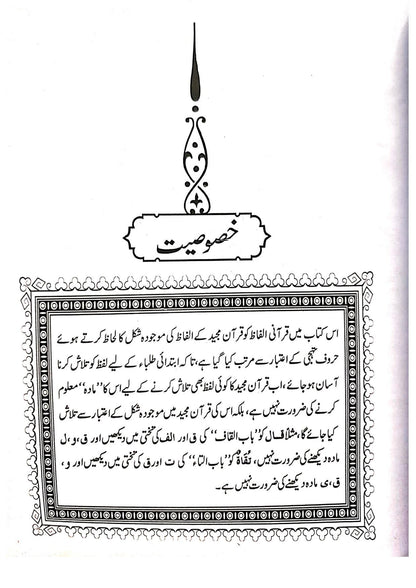 خصوصیت
اس کتاب میں قرآنی الفاظ کو قرآن مجید کے الفاظ کی موجودہ شکل کا لحاظ کرتے ہوئے
حروف تہجی کے اعتبار سے مرتب کیا گیا ہے، تاکہ ابتدائی طلباء کے لیے لفظ کو تلاش کرنا
آسان ہوجائے، اب قرآن مجید کا کوئی لفظ بھی تلاش کرنے کے لیے اس کا ’’مادہ‘‘ معلوم
کرنے کی ضرورت نہیں ہے، بلکہ اس کی قرآن مجید میں موجودہ شکل کے اعتبار سے تلاش
کیا جائے گا، مثلاً قَالَ کو ’’باب القاف‘‘ کی ق اور الف کی تختی میں دیکھیں اور ق، و، ل
مادہ دیکھنے کی ضرورت نہیں، تُقَاةً کو ’’باب التاء‘‘ کی ت اور ق کی تختی میں دیکھیں اور و،
ق، ی مادہ دیکھنے کی ضرورت نہیں ہے۔